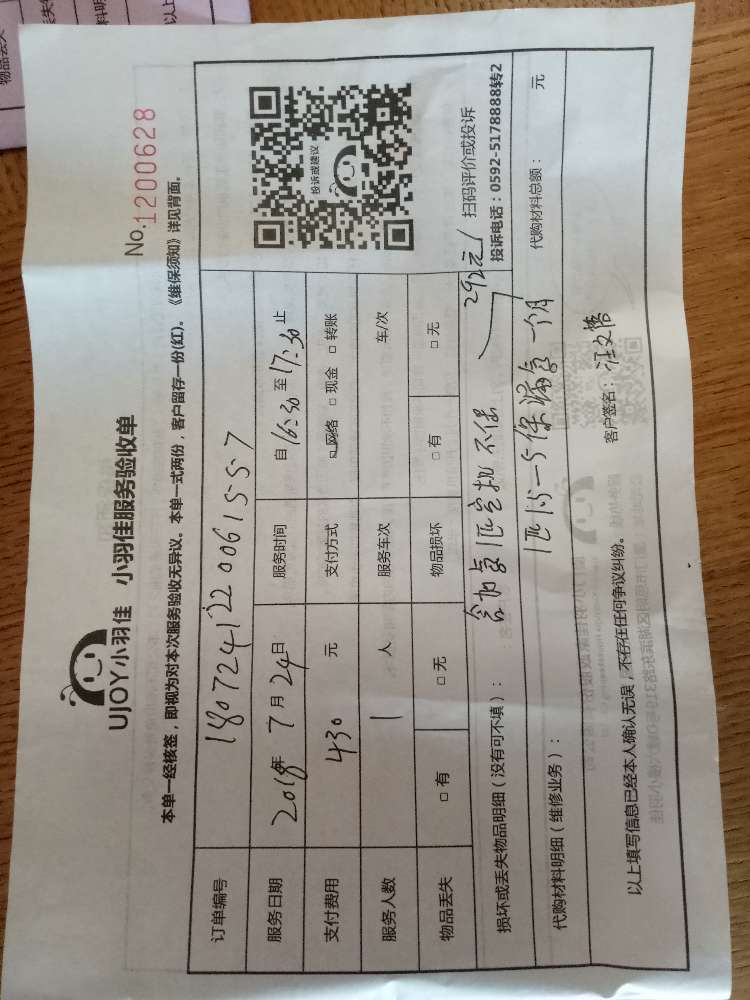 UJOY小羽佳 小羽佳服务验收单
No.1200628
本单一经核签，即视为对本次服务验收无异议。本单一式两份，客户留存一份(红)。《维保须知》详见背面。
订单编号 180724122006155-7
服务日期 2018年7月24日 服务时间 自16:30至17:30止
支付费用 430元 支付方式 □网络 □现金 □转账
服务人数 1人 服务车次 车/次
物品丢失 □有 □无 物品损坏 □有 □无
投诉或建议
扫码评价或投诉
投诉电话：0592-5178888转2
损坏或丢失物品明细（没有可不填）： 含加氟1匹空机不保 292元
1匹1.5-5保漏氟一个月
代购材料明细（维修业务）： 代购材料总额： 元
以上填写信息已经本人确认无误，不存在任何争议纠纷。 客户签名：汪文
物品丢失